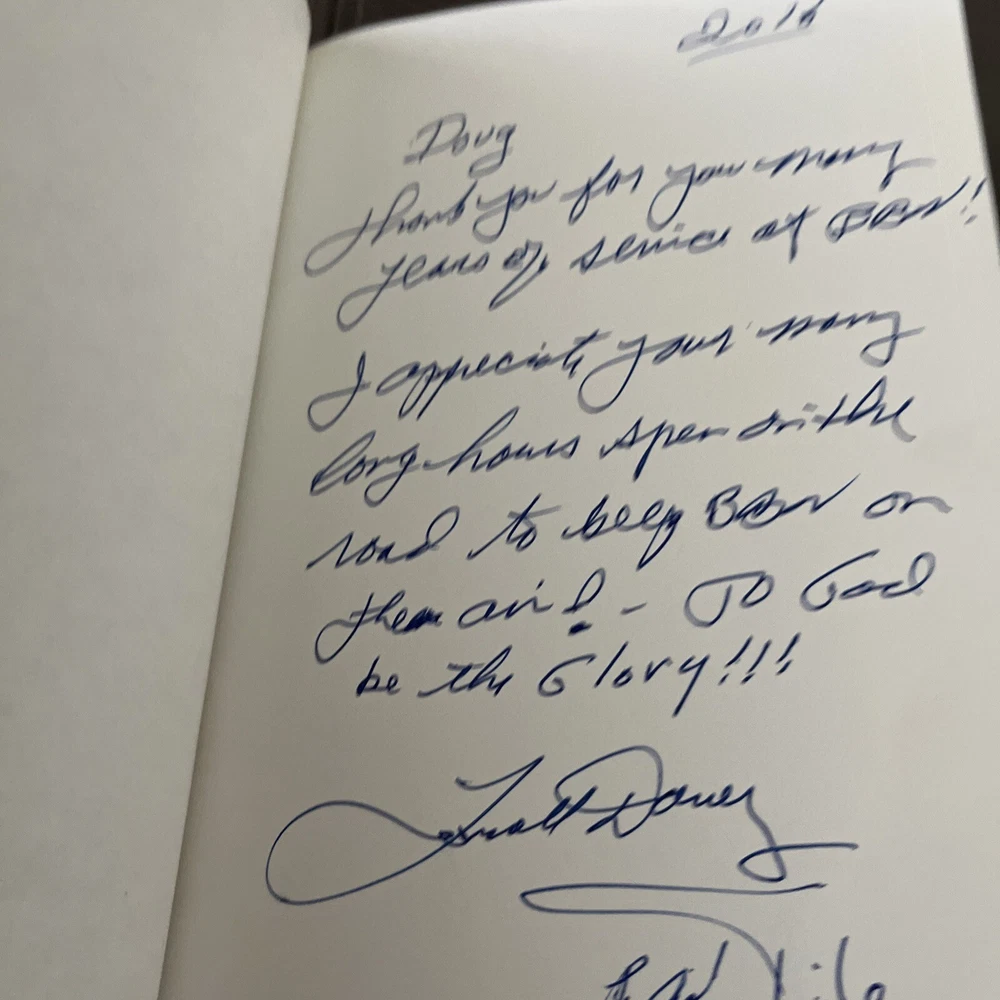 Doug
Thank you for you many
years of service at BBN!
I appreciate your many
long hours spen on the
road to keep BBN on
them air! - TO God
be the Glory!!!